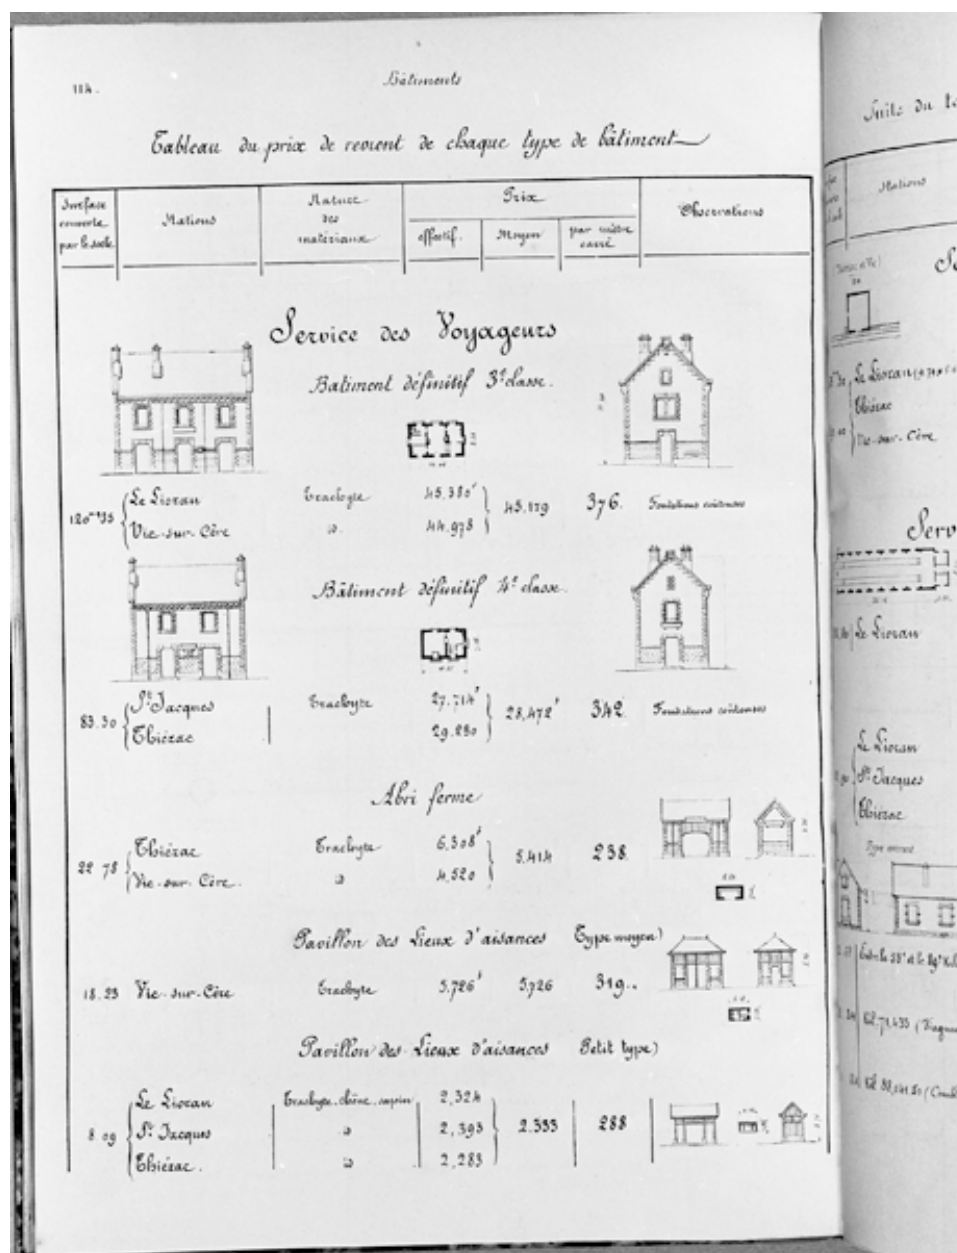 114.
Bâtiments
Tableau du prix de revient de chaque type de bâtiment
Surface couverte par le socle
Stations
Nature des matériaux
Prix
effectif.
Moyen
par mètre carré
Observations
Service des Voyageurs
Bâtiment définitif 3e classe.
120 35
Le Lioran Trachyte 45,380f 45,179 376. Fondations coûteuses
Vic-sur-Cère id 44,978
Bâtiment définitif 4e classe.
83.30
St Jacques Trachyte 27,714f 28,472f 342. Fondations coûteuses
Thiézac 29.230
Abri fermé
22 78
Thiézac Trachyte 6,308f 5,414 238.
Vic-sur-Cère. id 4,520
Pavillon des Lieux d'aisances Type moyen)
18.23 Vic-sur-Cère Trachyte 5,726f 5,726 319..
Pavillon des Lieux d'aisances Petit type)
8.09
Le Lioran Trachyte, chêne, sapin 2,324
St Jacques id 2,393 2.333 288
Thiézac. id 2,283
Suite du
Stations
Le Lioran
Thiézac
Vic-sur-Cère
Serv
Le Lioran
Le Lioran
St Jacques
Thiézac